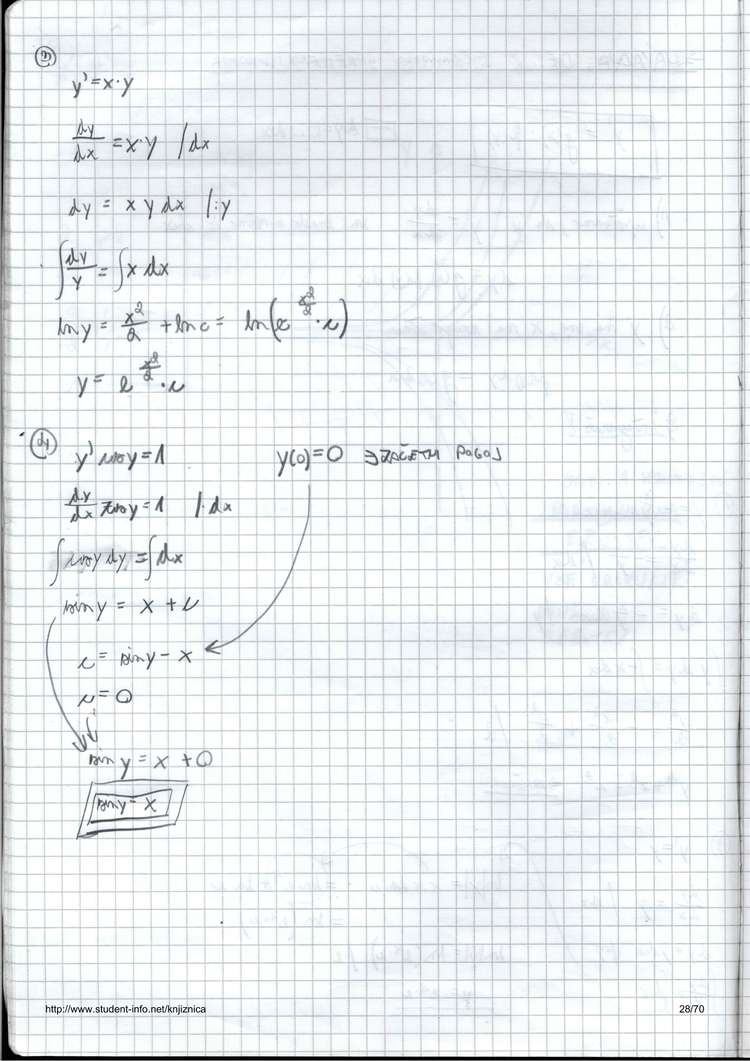 3
y' = x·y
dy/dx = x·y /dx
dy = x y dx /:y
∫ dy/y = ∫ x dx
ln y = x²/2 + ln c = ln(e^(x²/2) · c)
y = e^(x²/2) · c
y' cos y = 1 y(0) = 0 ZAČETNI POGOJ
dy/dx cos y = 1 /·dx
∫ cos y dy = ∫ dx
sin y = x + c
c = sin y - x
c = 0
sin y = x + 0
sin y = x
http://www.student-info.net/knjiznica 28/70